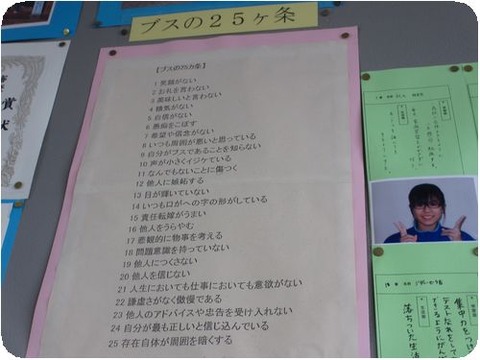 ブスの２５ヶ条
【ブスの25カ条】
1 笑顔がない
2 お礼を言わない
3 美味しいと言わない
4 精気がない
5 自信がない
6 愚痴をこぼす
7 希望や信念がない
8 いつも周囲が悪いと思っている
9 自分がブスであることを知らない
10 声が小さくイジケている
11 なんでもないことに傷つく
12 他人に嫉妬する
13 目が輝いていない
14 いつも口がへの字の形がしている
15 責任転嫁がうまい
16 他人をうらやむ
17 悲観的に物事を考える
18 問題意識を持っていない
19 他人につくさない
20 他人を信じない
21 人生においても仕事においても意欲がない
22 謙虚さがなく傲慢である
23 他人のアドバイスや忠告を受け入れない
24 自分が最も正しいと信じ込んでいる
25 存在自体が周囲を暗くする
賞
状
集中力をつけ
落ちついた生活